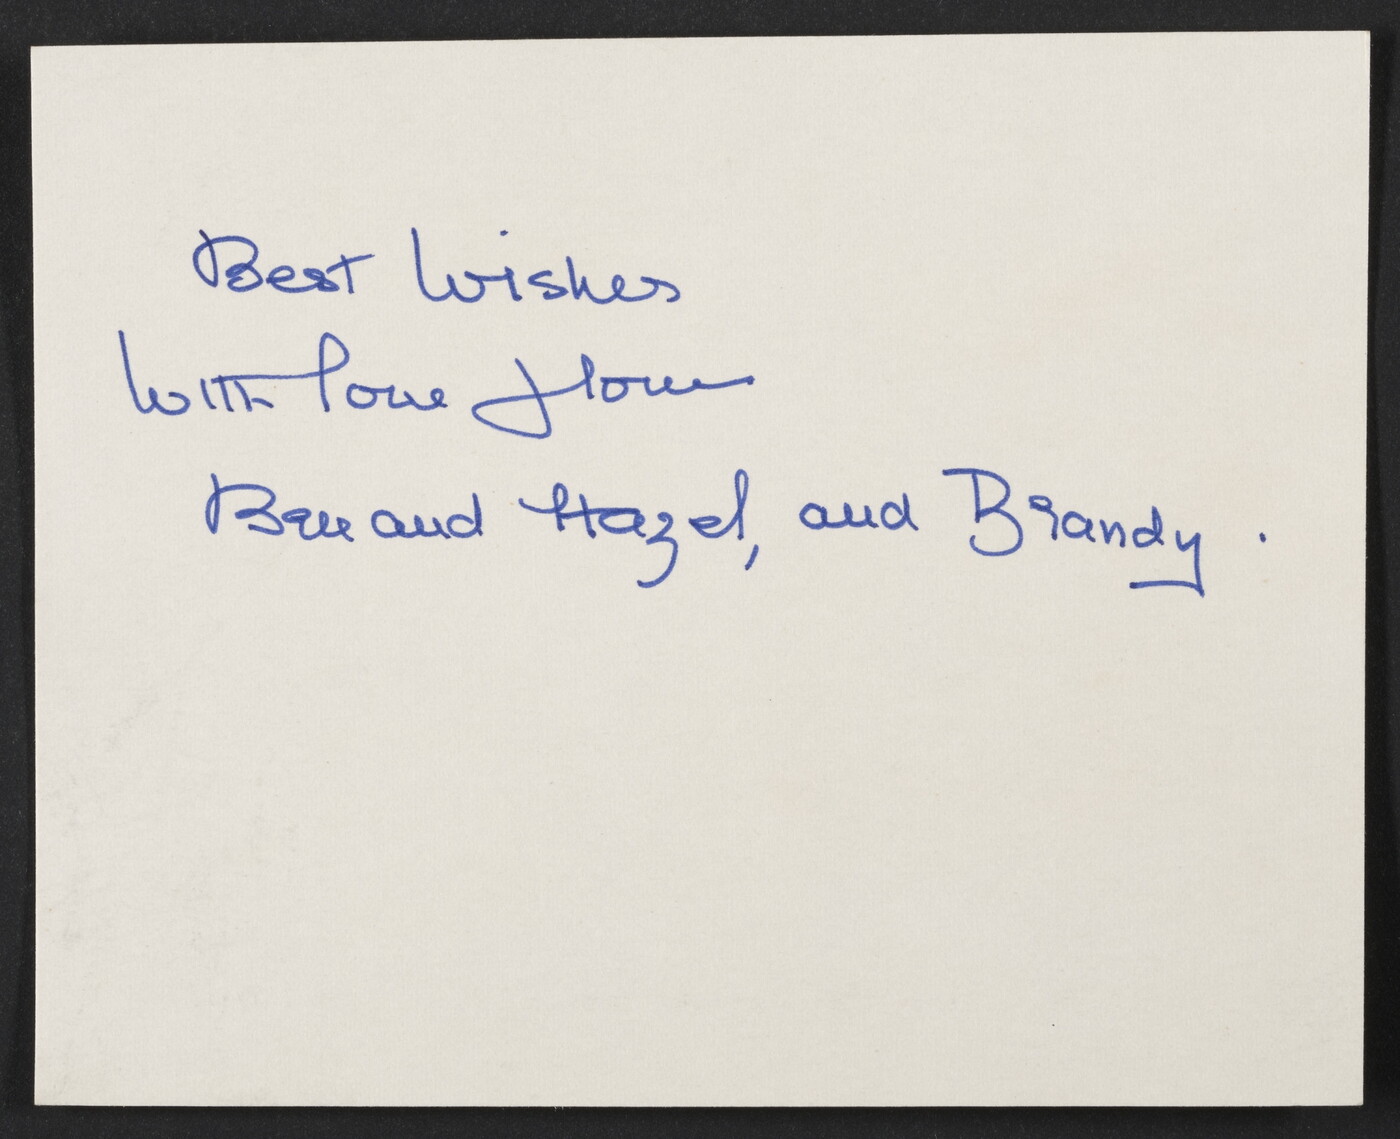 Best Wishes
With love from
Ben and Hazel, and Brandy .